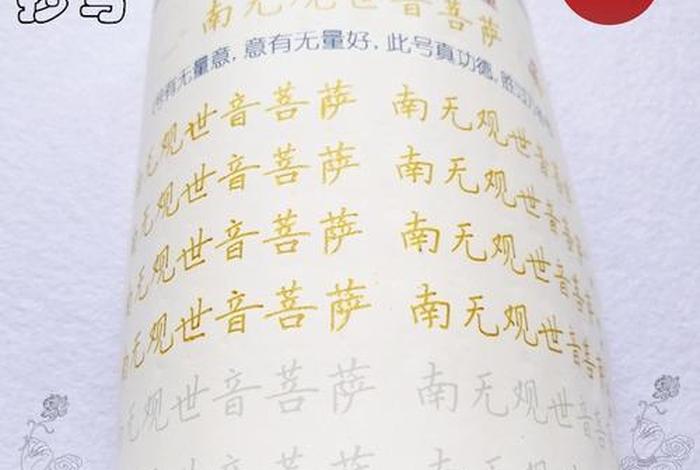 抄写
南无观世音菩萨
有无量意，意有无量好，此号真功德，
无观世音菩萨 南无观世音菩
无观世音菩萨 南无观世音菩萨
无观世音菩萨 南无观世音菩萨
南无观世音菩萨 南无观世音菩萨
无观世音菩萨 南无观世音菩